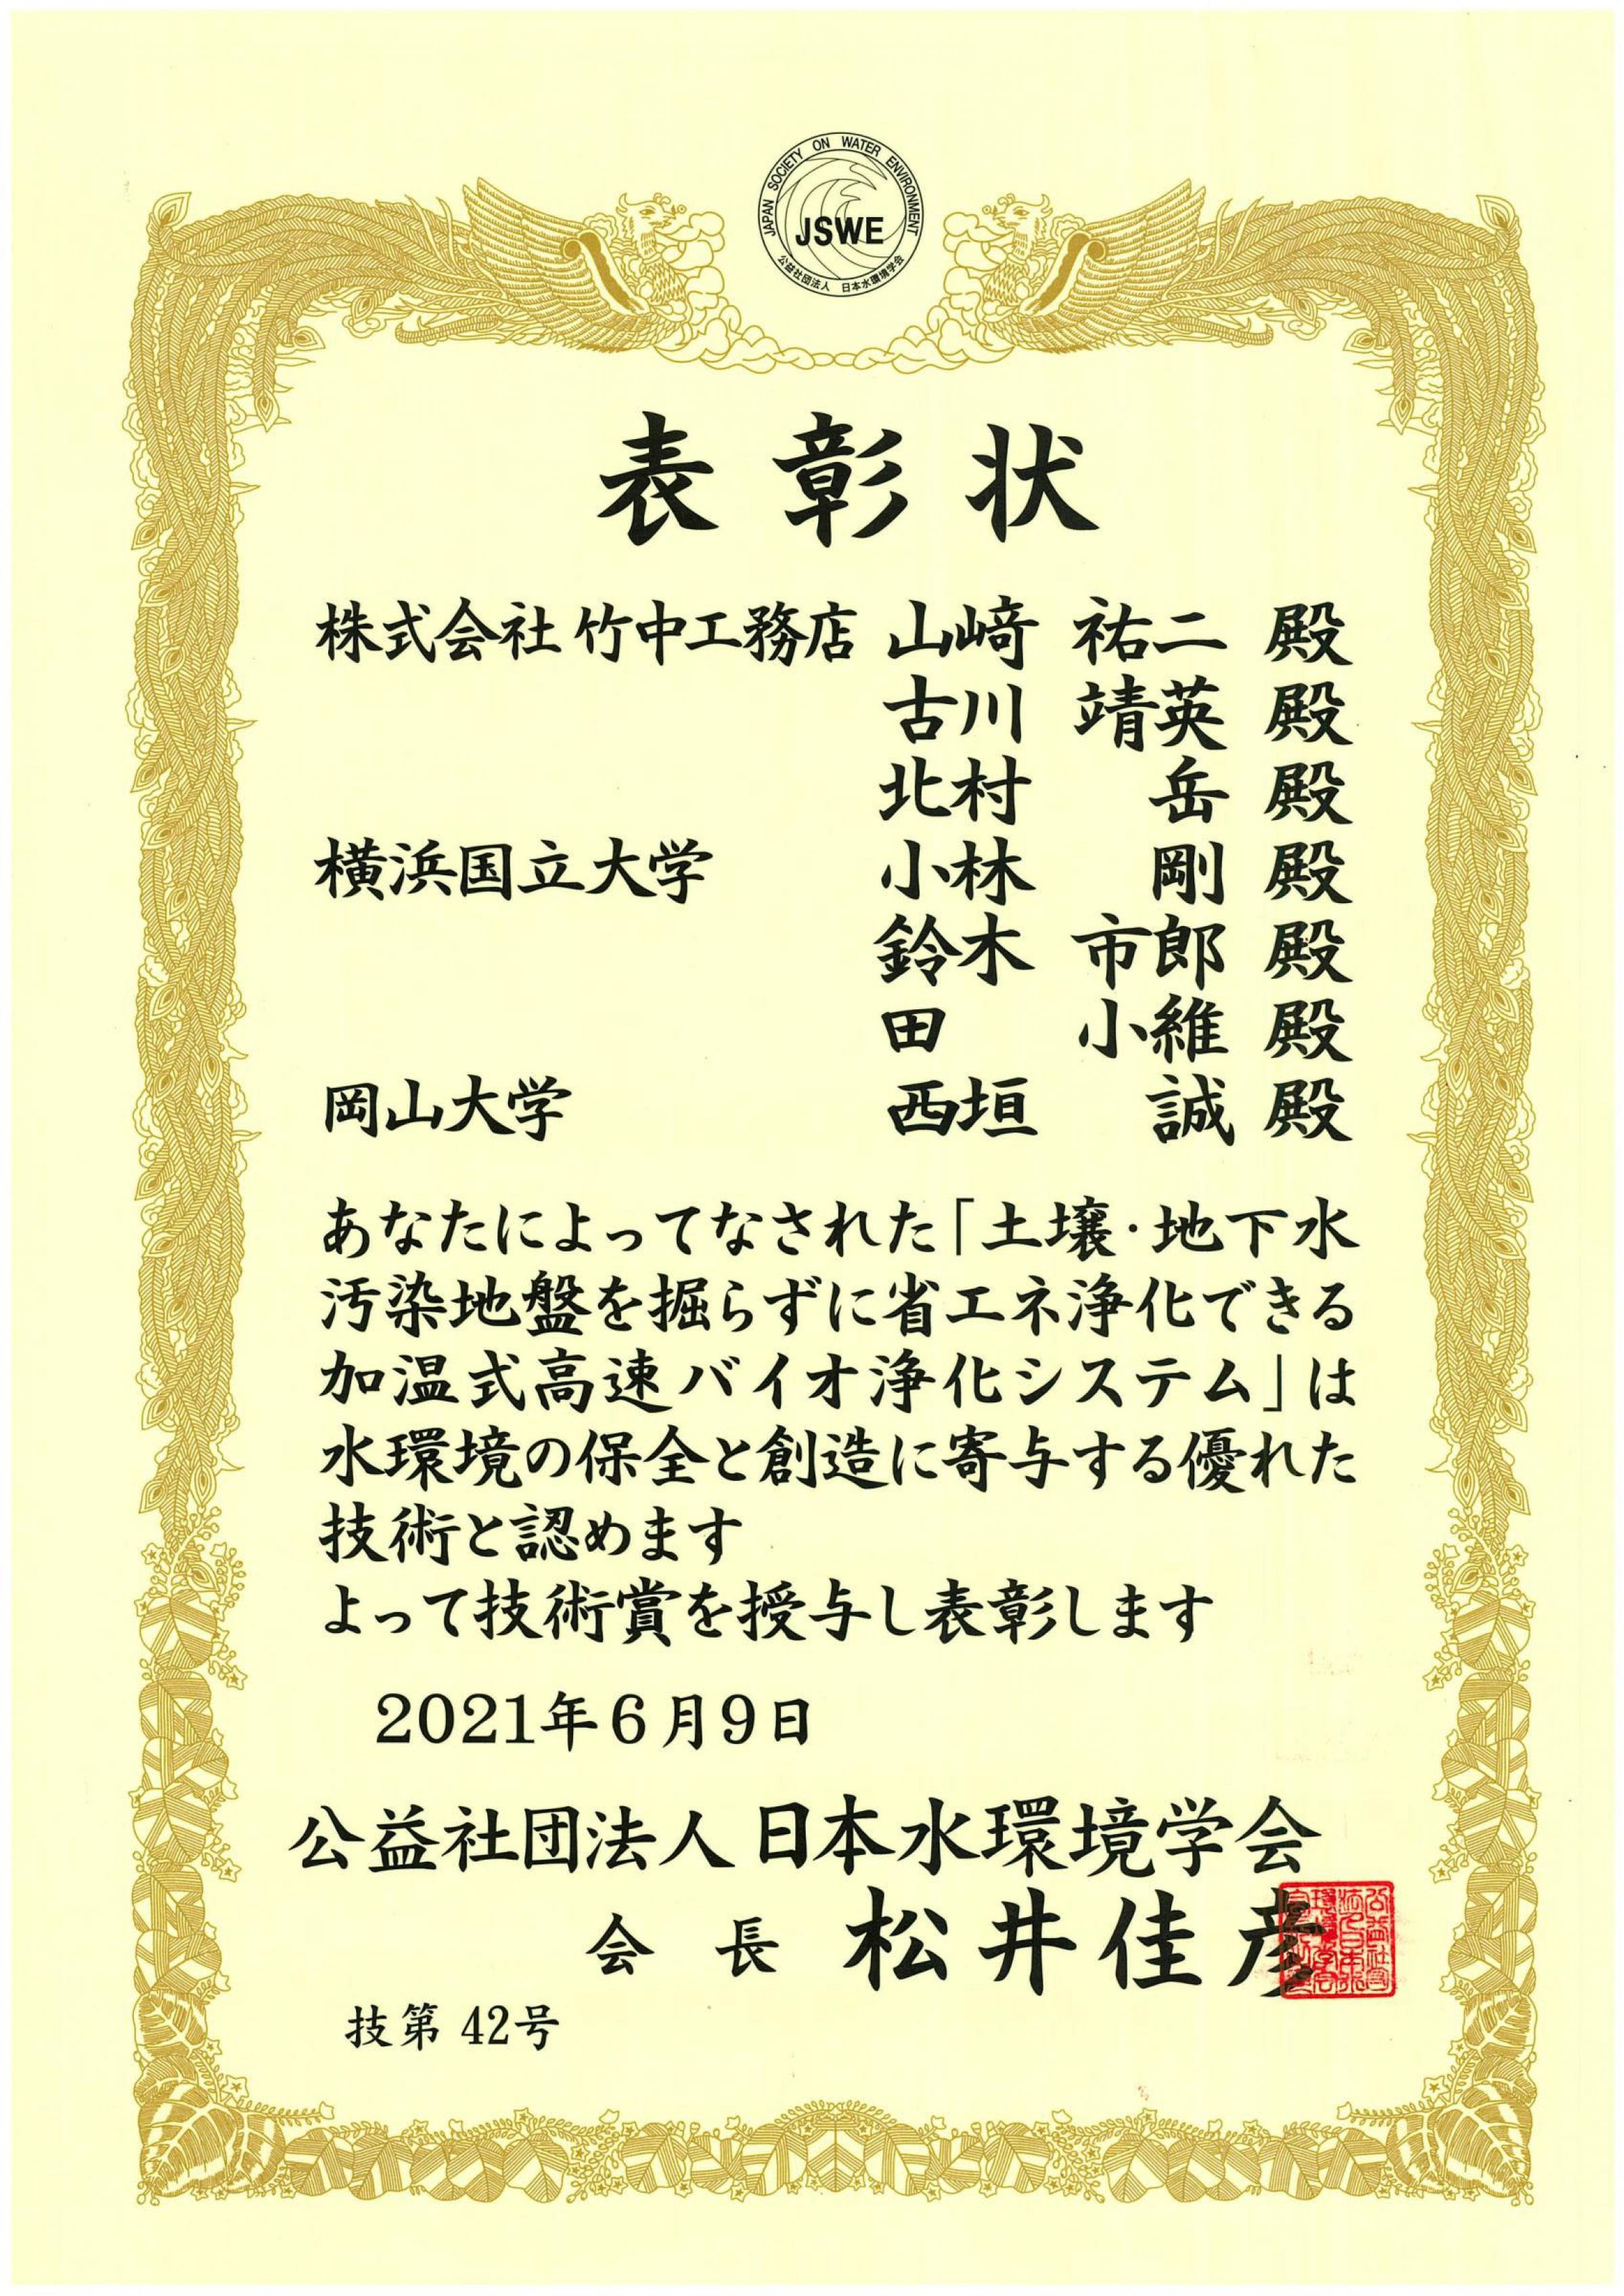 JAPAN SOCIETY ON WATER ENVIRONMENT
JSWE
公益社団法人 日本水環境学会
表彰状
株式会社 竹中工務店 山﨑 祐二 殿
古川 靖英 殿
北村 岳 殿
横浜国立大学 小林 剛 殿
鈴木 市郎 殿
田 小維 殿
岡山大学 西垣 誠 殿
あなたによってなされた「土壌・地下水
汚染地盤を掘らずに省エネ浄化できる
加温式高速バイオ浄化システム」は
水環境の保全と創造に寄与する優れた
技術と認めます
よって技術賞を授与し表彰します
2021年6月9日
公益社団法人日本水環境学会
会長 松井佳彦
技第 42号